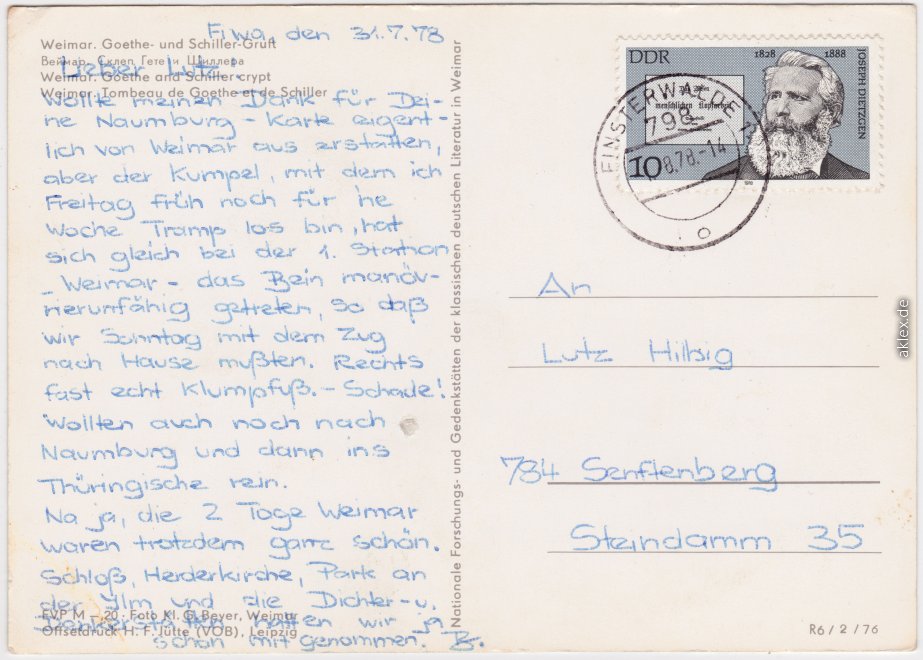 Fiwa, den 31.7.78
Weimar. Goethe- und Schiller-Gruft
Веймар. Склеп Гете и Шиллера
Weimar. Goethe and Schiller crypt
Weimar. Tombeau de Goethe et de Schiller
Lieber Lutz!
Wollte meinen Dank für Dei-
ne Naumburg-Karte eigent-
lich von Weimar aus erstatten,
aber der Kumpel, mit dem ich
Freitag früh noch für 'ne
Woche Tramp los bin, hat
sich gleich bei der 1. Station
- Weimar - das Bein manöv-
rierunfähig getreten, so daß
wir Sonntag mit dem Zug
nach Hause mußten. Rechts
fast echt Klumpfuß. - Schade!
Wollten auch noch nach
Naumburg und dann ins
Thüringische rein.
Na ja, die 2 Tage Weimar
waren trotzdem ganz schön.
Schloß, Herderkirche, Park an
der Ilm und die Dichter- u.
Denkerstätten hatten wir ja
schon mitgenommen. B.
FVP M – 20 · Foto Kl. G. Beyer, Weimar
Offsetdruck H. F. Jütte (VOB), Leipzig
Nationale Forschungs- und Gedenkstätten der klassischen deutschen Literatur in Weimar
DDR 1828 1888
JOSEPH DIETZGEN
menschlichen Kopfarbeit
10
1978
FINSTERWALDE
798
8.78.-14
An
Lutz Hilbig
784 Senftenberg
Steindamm 35
R6/2/76
aklex.de